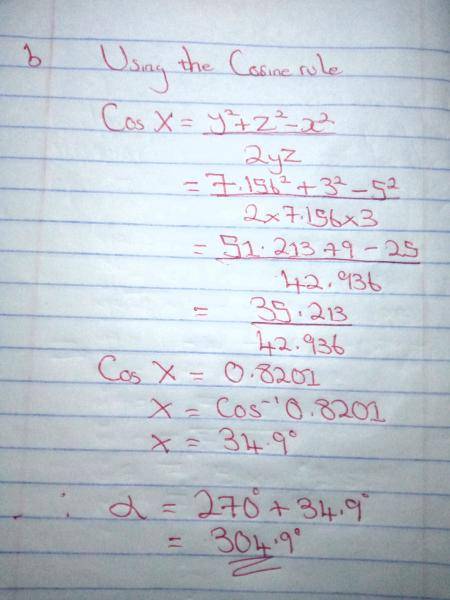 b Using the Cosine rule
Cos X = y²+z²-x²
2yz
= 7.156² + 3² - 5²
2×7.156×3
= 51.213 + 9 - 25
42.936
= 35.213
42.936
Cos X = 0.8201
X = Cos⁻¹ 0.8201
X = 34.9°
∴ α = 270° + 34.9°
= 304.9°